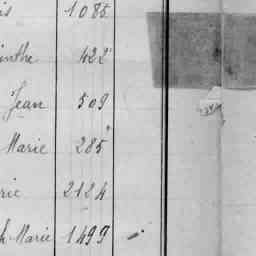 is 1085
inthe 422
Jean 509
Marie 285
rie 2124
h-Marie 1499